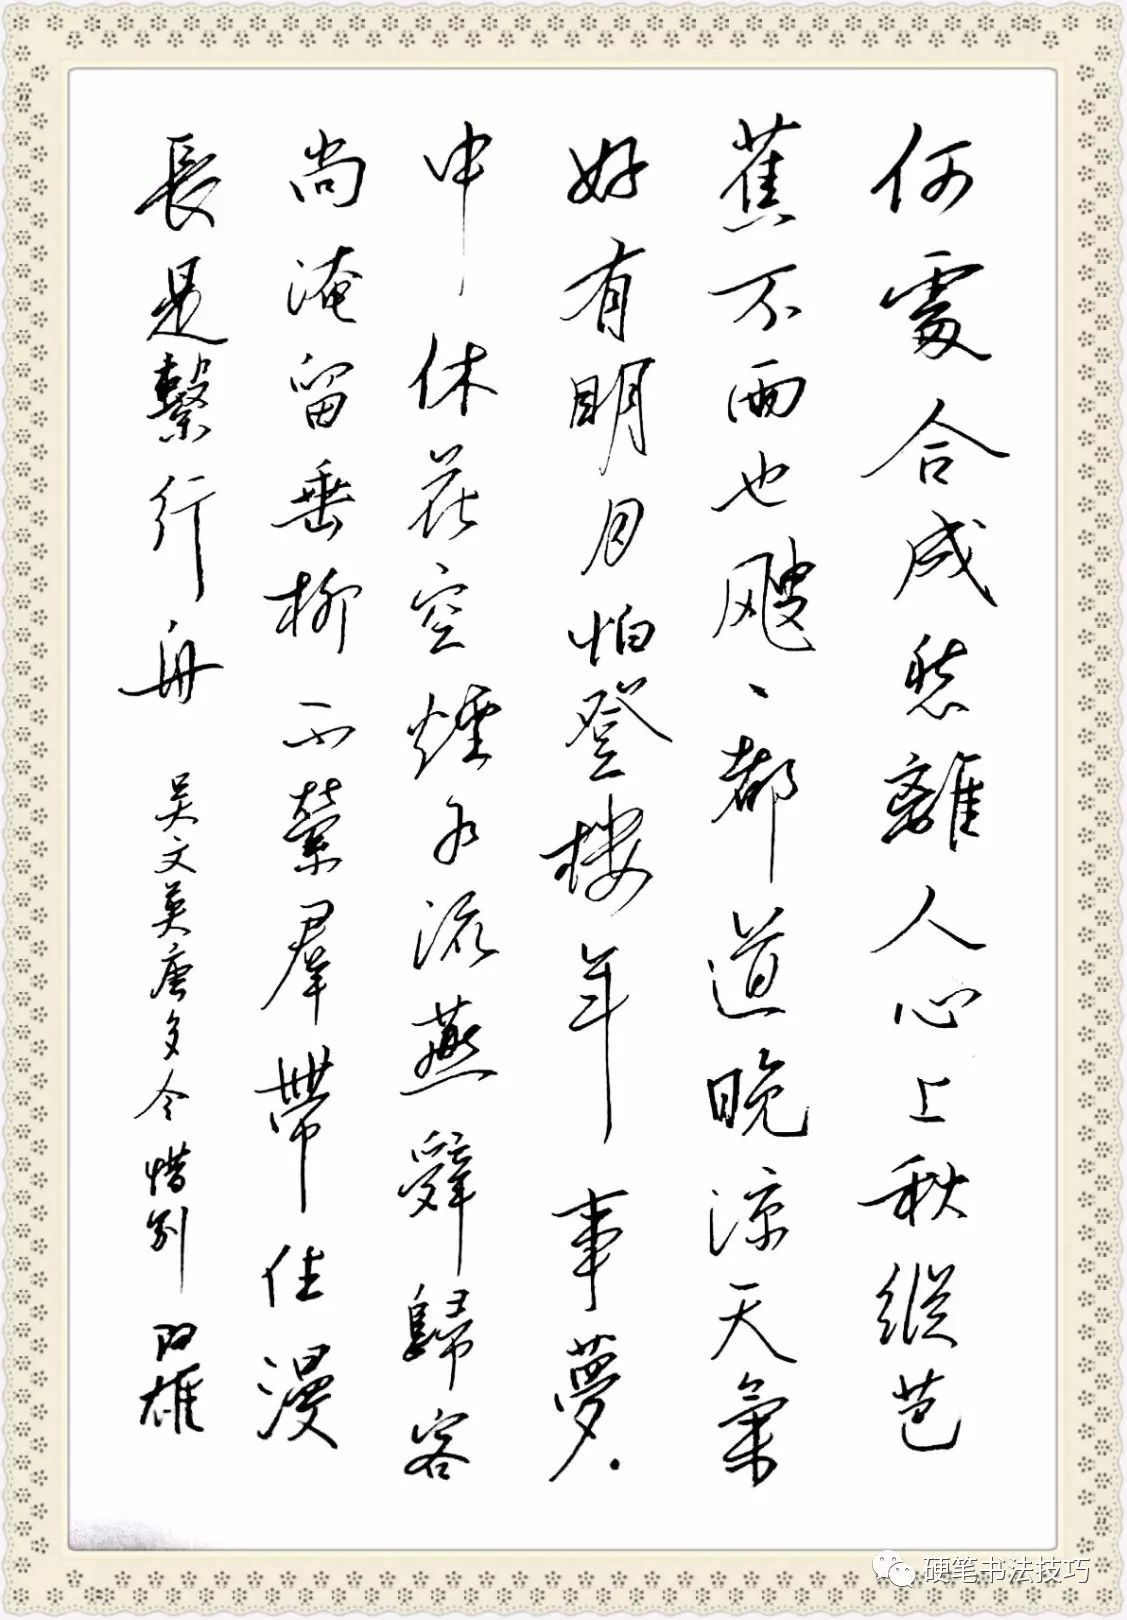 何處合成愁離人心上秋縱芭
蕉不雨也颼、都道晚涼天氣
好有明月怕登樓年事夢.
中休花空煙水流燕辭歸客
尚淹留垂柳不縈羣帶住漫
長是繫行舟 吳文英唐多令惜別 雄
硬笔书法技巧